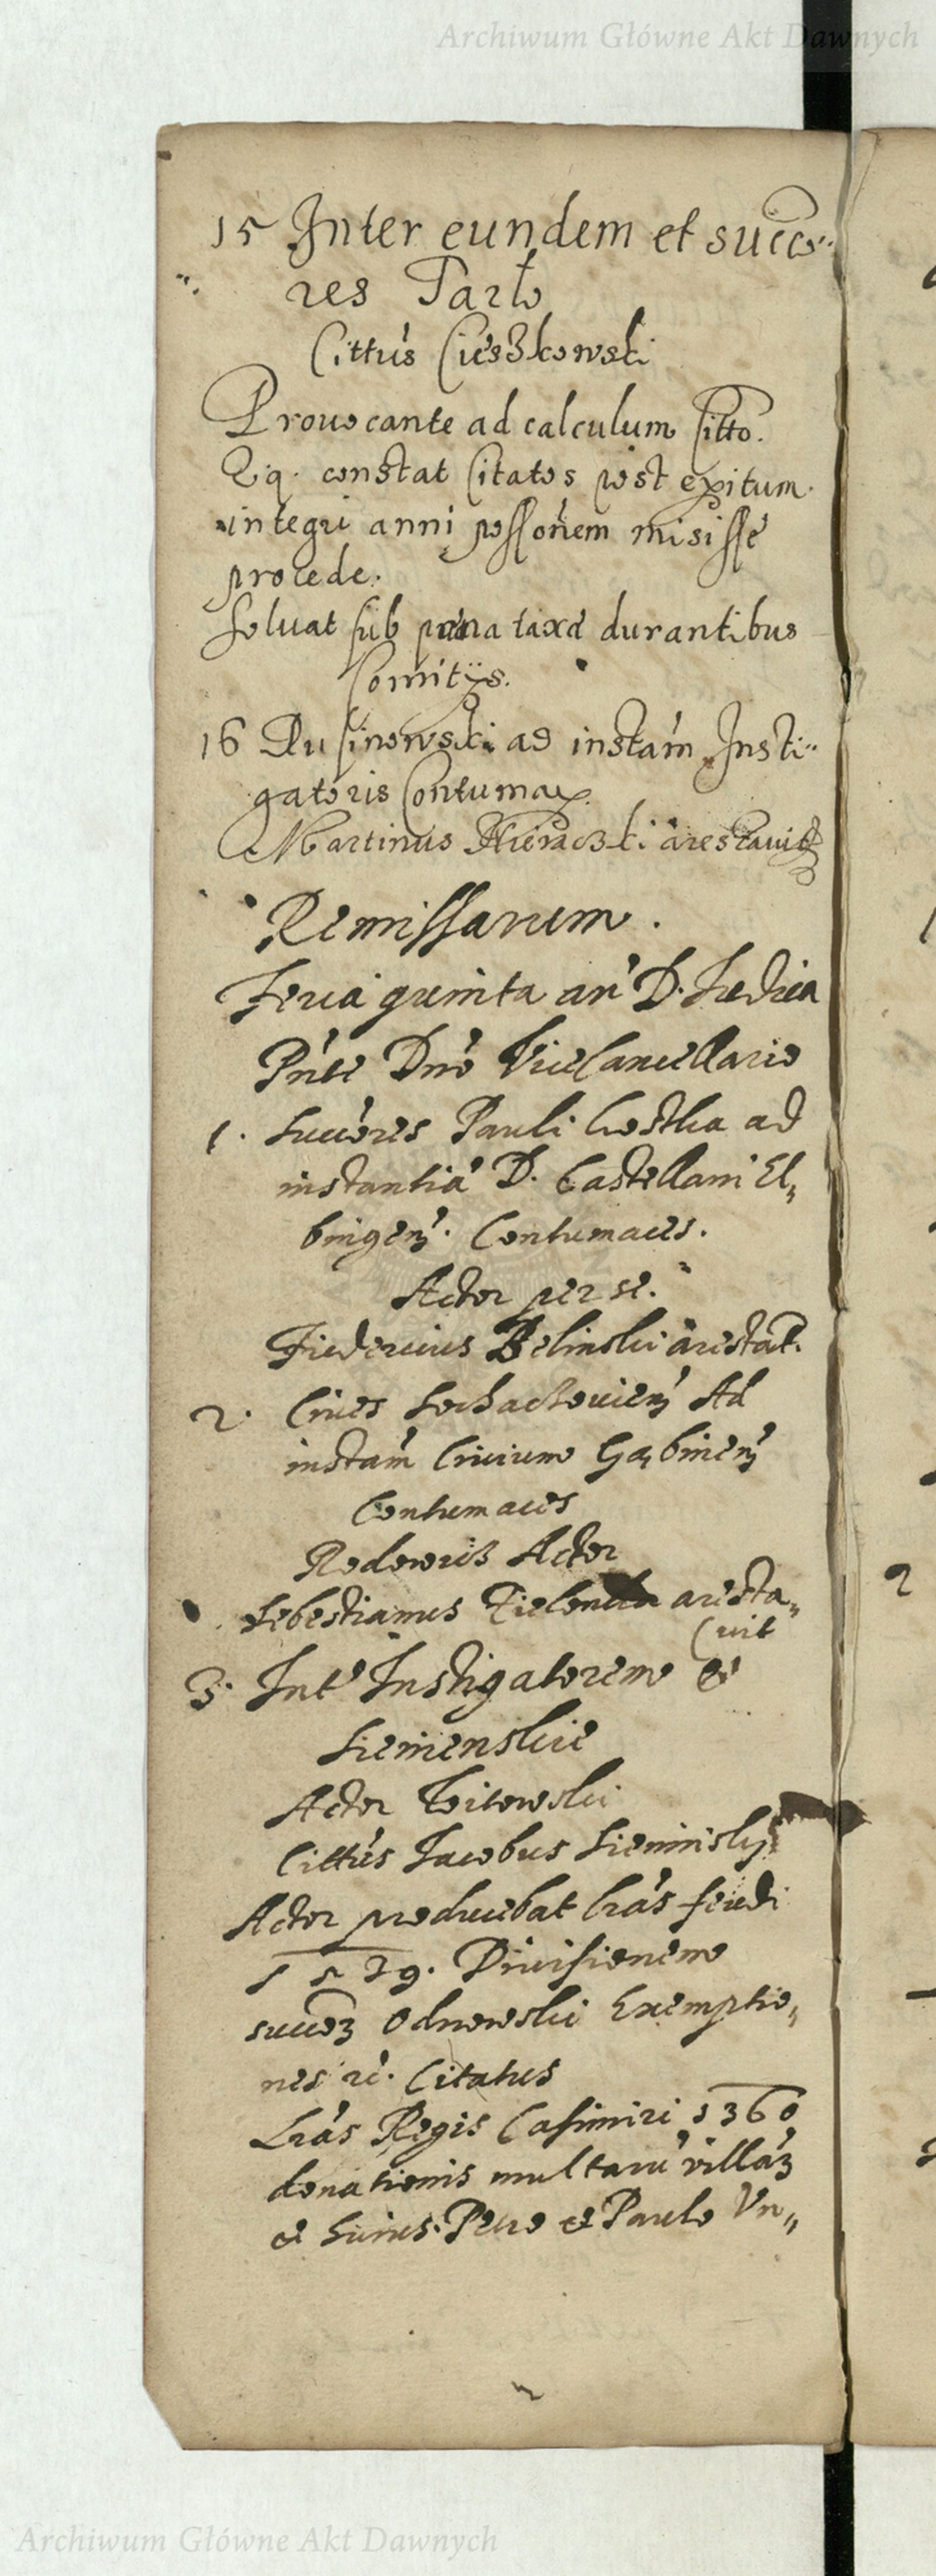 Archiwum Główne Akt Dawnych
15 Inter eundem et succo
res Parlo
Cittus Cieszkowski
Prouocante ad calculum Citto.
Q.q. constat Citatos post exitum
integri anni possonem misisse
procede.
Soluat sub pœna taxa durantibus
Comitijs.
16 Ru sinowski ad instam Insti
gatoris Contumax.
Martinus arestauit
Remissarum.
Feria quinta an D. Judica
Pnte Dno Vicecancellario
1. Succores Pauli Costka ad
instantia D. Castellani El
bingen. Contumaces.
Actor per se.
Fridericus Belinski arestat.
2. Ciues Sochaczouien Ad
instam Ciuium Gąbinen
Contumaces
Actor
Sebestianus aresta
uit
3. Int Instigatorem et
Siemienskie
Actor Witowski
Cittus Jacobus Sieminsky
Actor producebat lras feudi
1579. Diuisionem
succoz Odnowski Exemptio
nes rc. Citatus
Lras Regis Casimiri 1360
donationis multaru villaz
et Siemus. Petro et Paulo Vn
Archiwum Główne Akt Dawnych